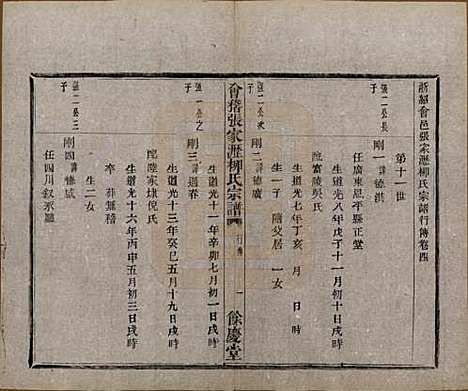 浙紹會邑張家瀝柳氏宗譜行傳卷四
第十一世
張二公長子
剛一 諱德淇
任廣東恩平縣正堂
生道光八年戊子十一月初十日戌時
配富陵吳氏
生道光七年丁亥 月 日 時
生一子 隨父居 一女
張二公次子
剛二 諱德廣
會稽張家瀝柳氏宗譜
行傳 一
餘慶堂
張一公之子
剛三 諱遇春
生道光十一年辛卯七月初五日戌時
配陸家埭倪氏
生道光十三年癸巳五月十九日戌時
卒道光十六年丙申五月初三日戌時
葬無稽
生二女
張二公三子
剛四 諱德威
任四川敘永廳